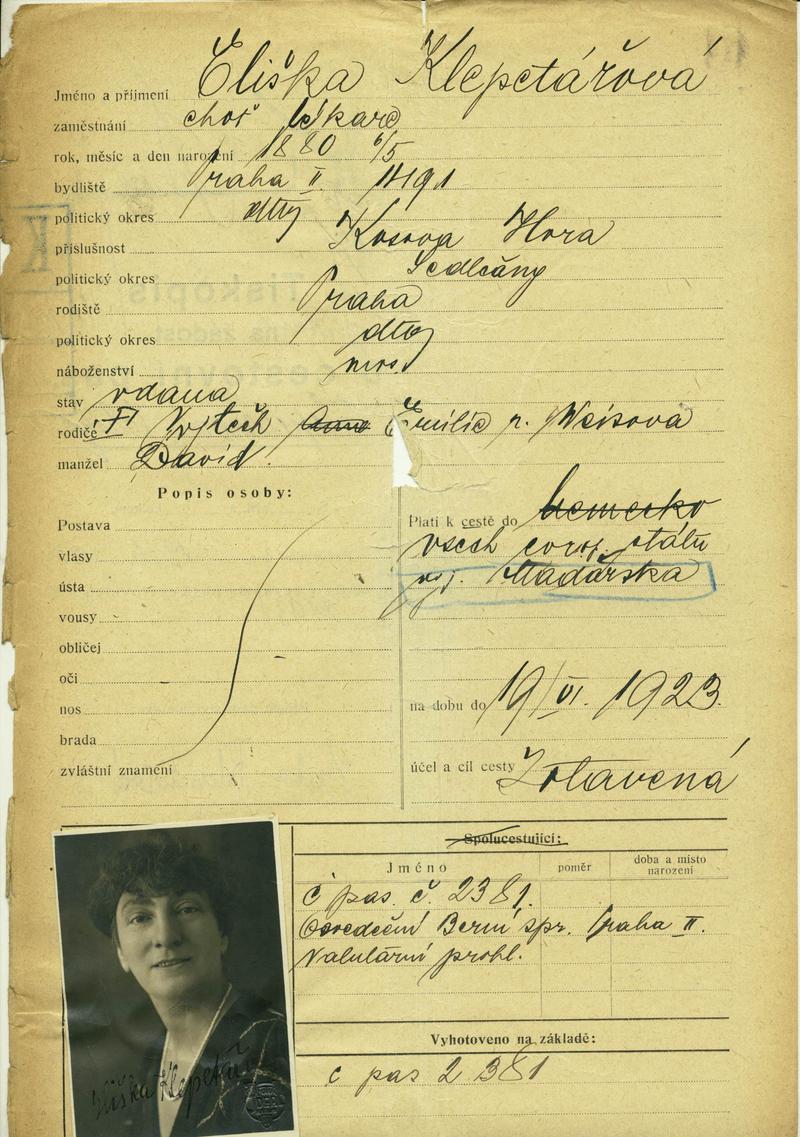 Jméno a příjmení Eliška Klepetářová
zaměstnání choť lékaře
rok, měsíc a den narození 1880 6/5
bydliště Praha II. 1491
politický okres dtto
příslušnost Kosova Hora
politický okres Sedlčany
rodiště Praha
politický okres dtto
náboženství mos.
stav vdana
rodiče Vojtěch Anna Emilie r. Weisova
manžel David.
Popis osoby:
Postava
vlasy
ústa
vousy
obličej
oči
nos
brada
zvláštní znamení
Platí k cestě do Německo
všech evrop. států
vyj. Maďarska
na dobu do 19/VI. 1923.
účel a cíl cesty Zotavená
Spolucestující:
Jméno poměr doba a místo narození
č pas. č. 2381.
Osvedčění Berní spr. Praha II.
Valutární prohl.
Vyhotoveno na základě:
č pas 2381
Eliška Klepetář